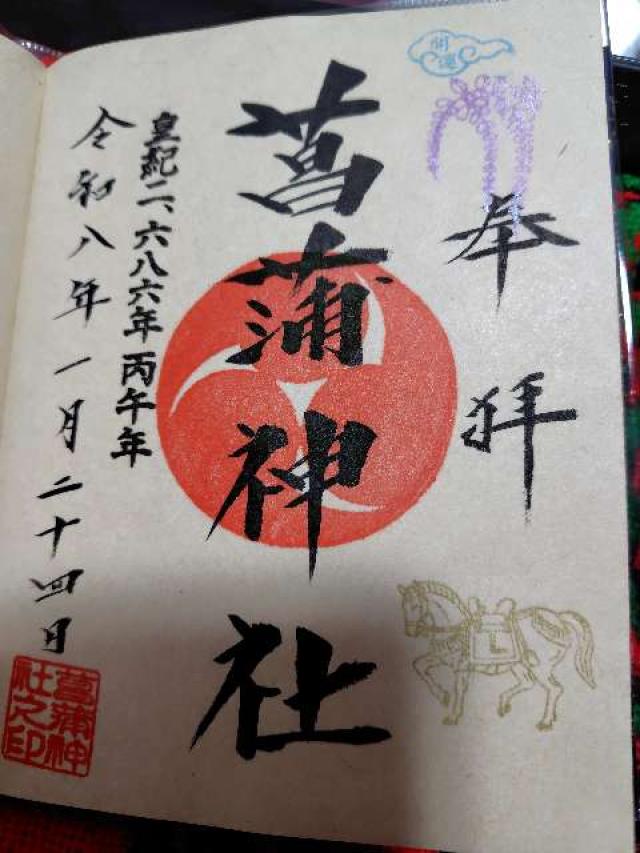 開運
奉拝
菖蒲神社
皇紀二、六八六年 丙午年
令和八年一月二十四日
菖蒲神
社之印